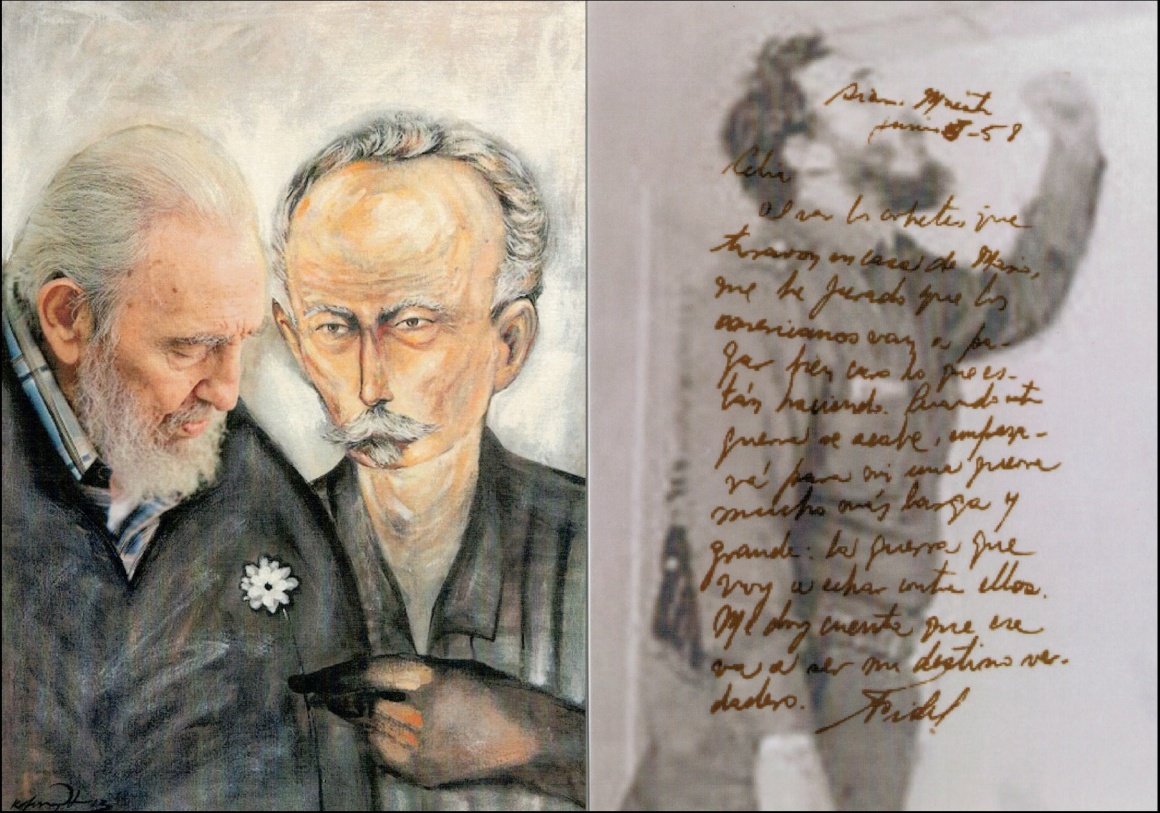 Sierra Maestra
Junio 5-58
Celia
Al ver los cohetes que
tiraron en casa de Mario,
me he jurado que los
americanos van a pa-
gar bien caro lo que es-
tán haciendo. Cuando esta
guerra se acabe, empeza-
rá para mi una guerra
mucho más larga y
grande: la guerra que
voy a echar contra ellos.
Me doy cuenta que ese
va a ser mi destino ver-
dadero.
Fidel